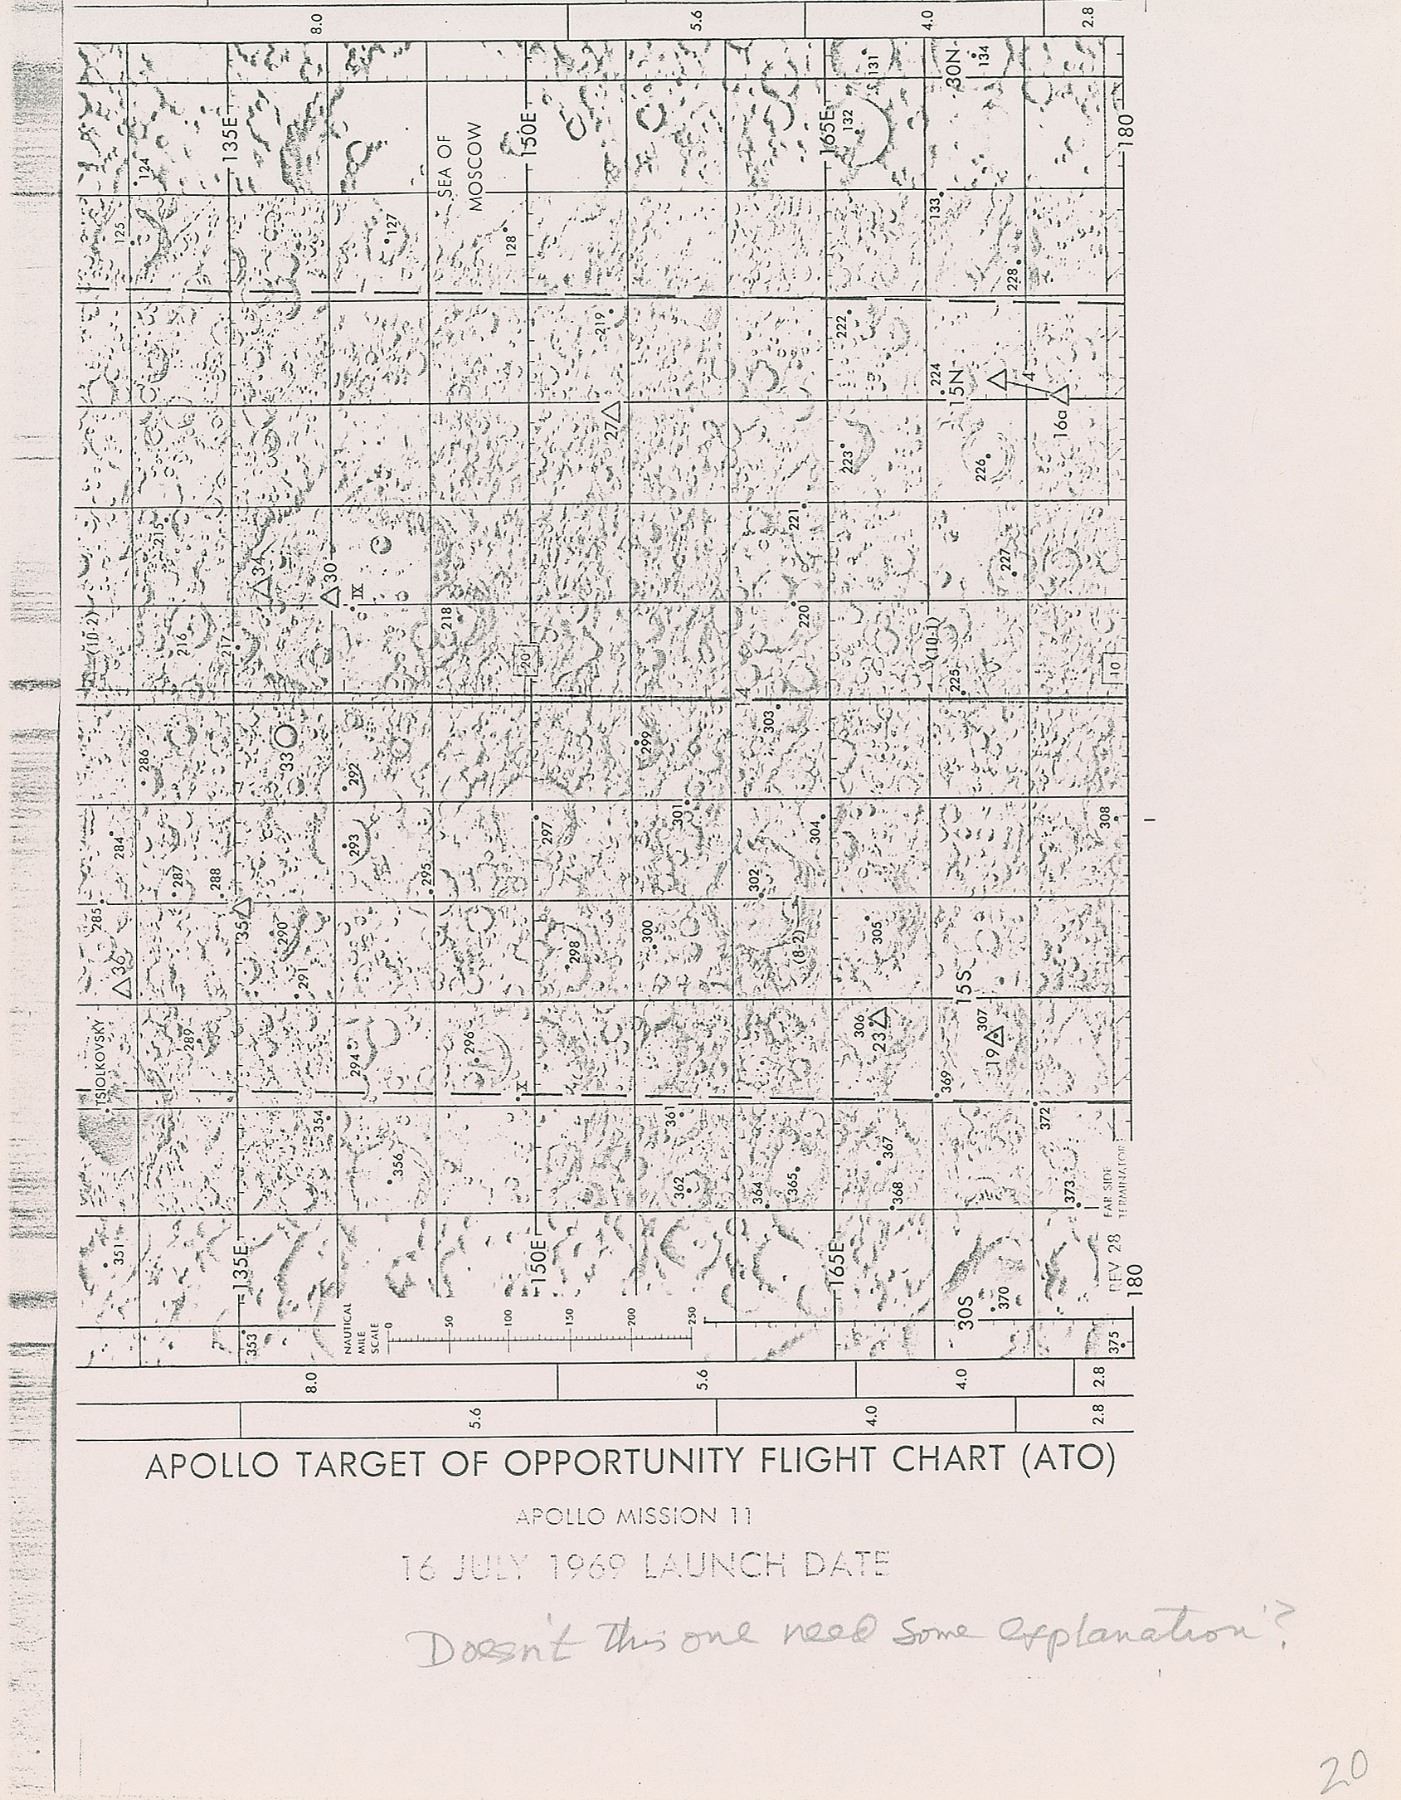 8.0 5.6 4.0 2.8
131
30N
134
132
165E
150E
135E
180
SEA OF
MOSCOW
124
125
127
128
133
228
219
222
224
15N
4
16a
27
223
226
215
34
30
IX
221
227
(10-2)
216
217
218
20
220
(10-1)
225
10
4
303
286
33
292
299
284
287
288
293
295
297
301
302
304
308
285
36
35
290
291
298
300
(8-2)
305
15S
TSIOLKOVSKY
289
294
296
X
306
23
307
19
369
354
356
361
362
364
365
367
368
372
373
FAR SIDE
TERMINATOR
351
135E
150E
165E
30S
370
REV 28
180
353
NAUTICAL
MILE
SCALE
0 50 100 150 200 250
375
8.0 5.6 4.0 2.8
5.6 4.0 2.8
APOLLO TARGET OF OPPORTUNITY FLIGHT CHART (ATO)
APOLLO MISSION 11
16 JULY 1969 LAUNCH DATE
Doesn't this one need some explanation?
20